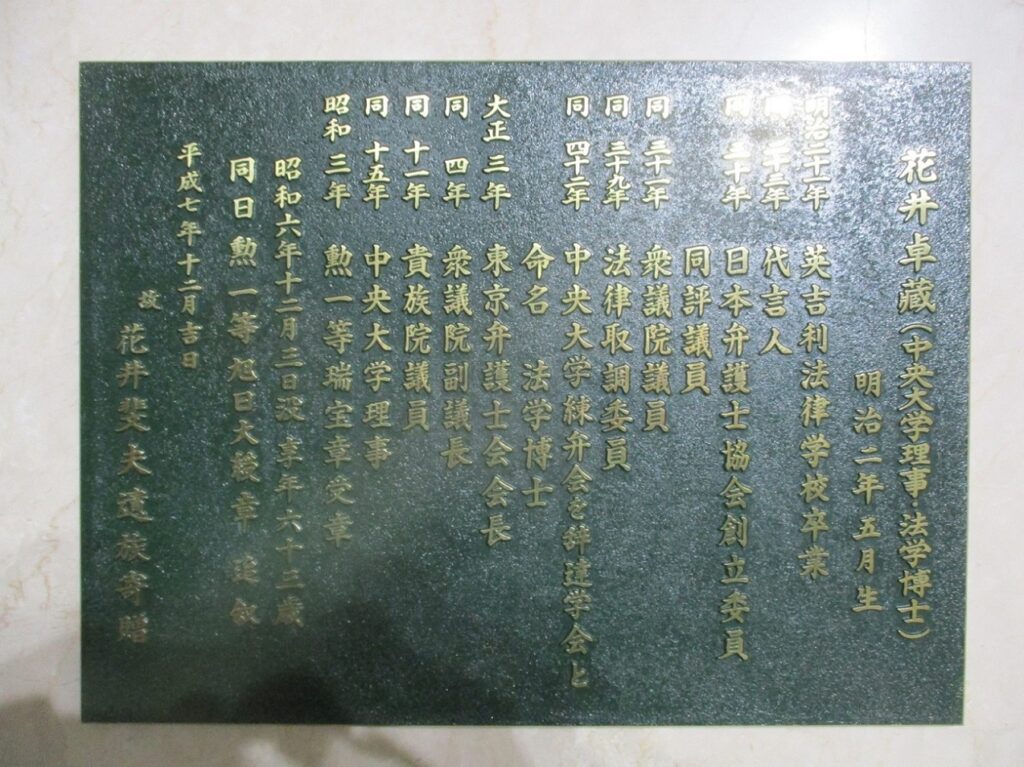 花井卓蔵(中央大学理事・法学博士)
明治二年五月生
明治二十一年 英吉利法律学校卒業
同 二十三年 代言人
同 三十年 日本弁護士協会創立委員
同評議員
同 三十一年 衆議院議員
同 三十九年 法律取調委員
同 四十二年 中央大学練弁会を辞達学会と
命名 法学博士
大正 三年 東京弁護士会会長
同 四年 衆議院副議長
同 十一年 貴族院議員
同 十五年 中央大学理事
昭和 三年 勲一等瑞宝章受章
昭和六年十二月三日没 享年六十三歳
同日勲一等旭日大綬章 追叙
平成七年十二月吉日
故 花井斐夫遺族寄贈